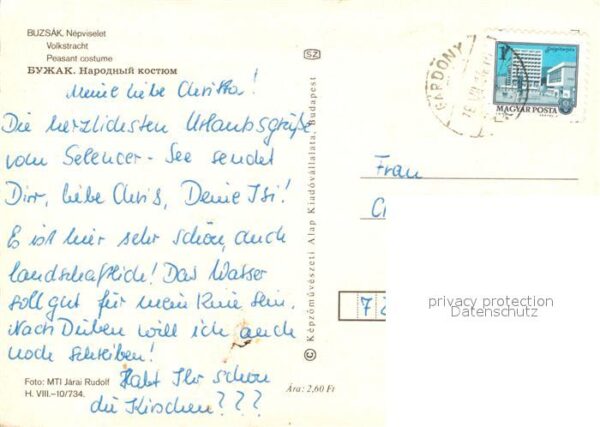 BUZSÁK. Népviselet
Volkstracht
Peasant costume
БУЖАК. Народный костюм
Meine liebe Christa!
Die herzlichsten Urlaubsgrüße
vom Selencer-See sendet
Dir, liebe Chris, Deine Isi!
Es ist hier sehr schön, auch
landschaftlich! Das Wasser
soll gut für mein Knie sein.
Nach Düben will ich auch
noch schreiben!
Habt Ihr schon
die Kirschen???
Foto: MTI Járai Rudolf
H. VIII.–10/734.
Ára: 2,60 Ft
SZ
© Képzőművészeti Alap Kiadóvállalata, Budapest
GÁRDONY
MAGYAR POSTA
Frau
7 2
privacy protection
Datenschutz